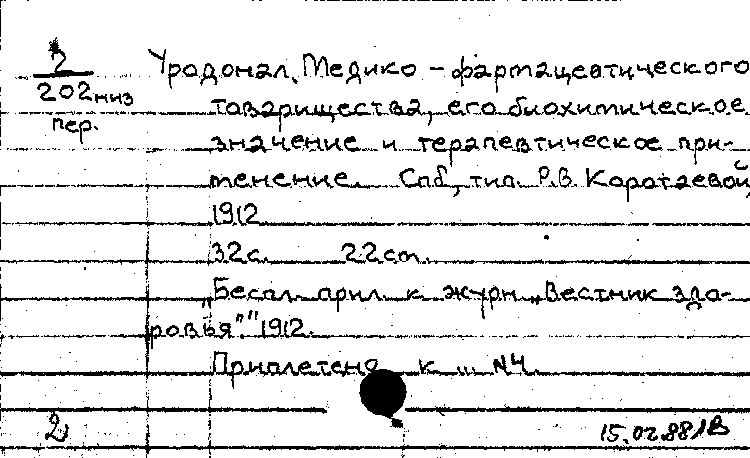 2 Уродонал Медико-фармацевтического
202 низ товарищества, его биохимическое
пер. значение и терапевтическое при-
менение. Спб, тип. Р.В. Коротаевой,
1912
32с. 22см.
„Беспл. прил. к журн. „Вестник здо-
ровья"." 1912.
Приплетено к ... №4.
2 15.02.88